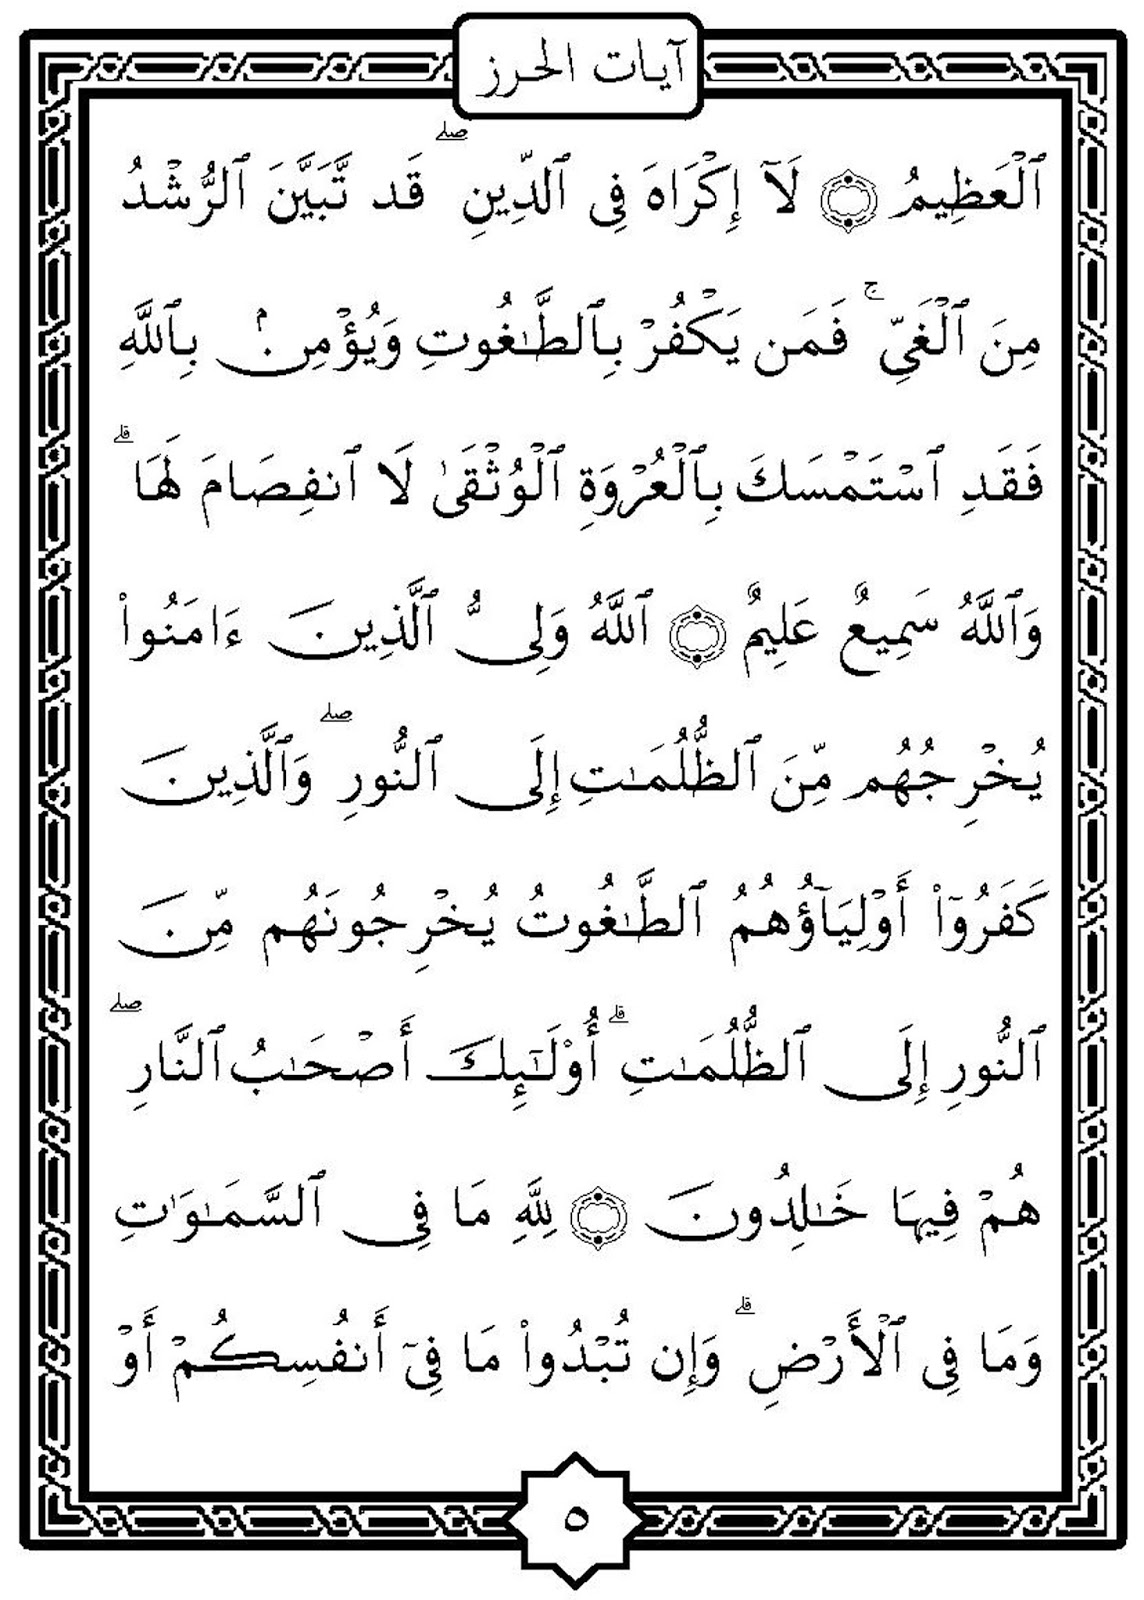 آيات الحرز
ٱلْعَظِيمُ ۝ لَآ إِكْرَاهَ فِى ٱلدِّينِ ۖ قَد تَّبَيَّنَ ٱلرُّشْدُ
مِنَ ٱلْغَىِّ ۚ فَمَن يَكْفُرْ بِٱلطَّـٰغُوتِ وَيُؤْمِنۢ بِٱللَّهِ
فَقَدِ ٱسْتَمْسَكَ بِٱلْعُرْوَةِ ٱلْوُثْقَىٰ لَا ٱنفِصَامَ لَهَا ۗ
وَٱللَّهُ سَمِيعٌ عَلِيمٌ ۝ ٱللَّهُ وَلِىُّ ٱلَّذِينَ ءَامَنُوا۟
يُخْرِجُهُم مِّنَ ٱلظُّلُمَـٰتِ إِلَى ٱلنُّورِ ۖ وَٱلَّذِينَ
كَفَرُوٓا۟ أَوْلِيَآؤُهُمُ ٱلطَّـٰغُوتُ يُخْرِجُونَهُم مِّنَ
ٱلنُّورِ إِلَى ٱلظُّلُمَـٰتِ ۗ أُو۟لَـٰٓئِكَ أَصْحَـٰبُ ٱلنَّارِ ۖ
هُمْ فِيهَا خَـٰلِدُونَ ۝ لِلَّهِ مَا فِى ٱلسَّمَـٰوَٰتِ
وَمَا فِى ٱلْأَرْضِ ۗ وَإِن تُبْدُوا۟ مَا فِىٓ أَنفُسِكُمْ أَوْ
٥